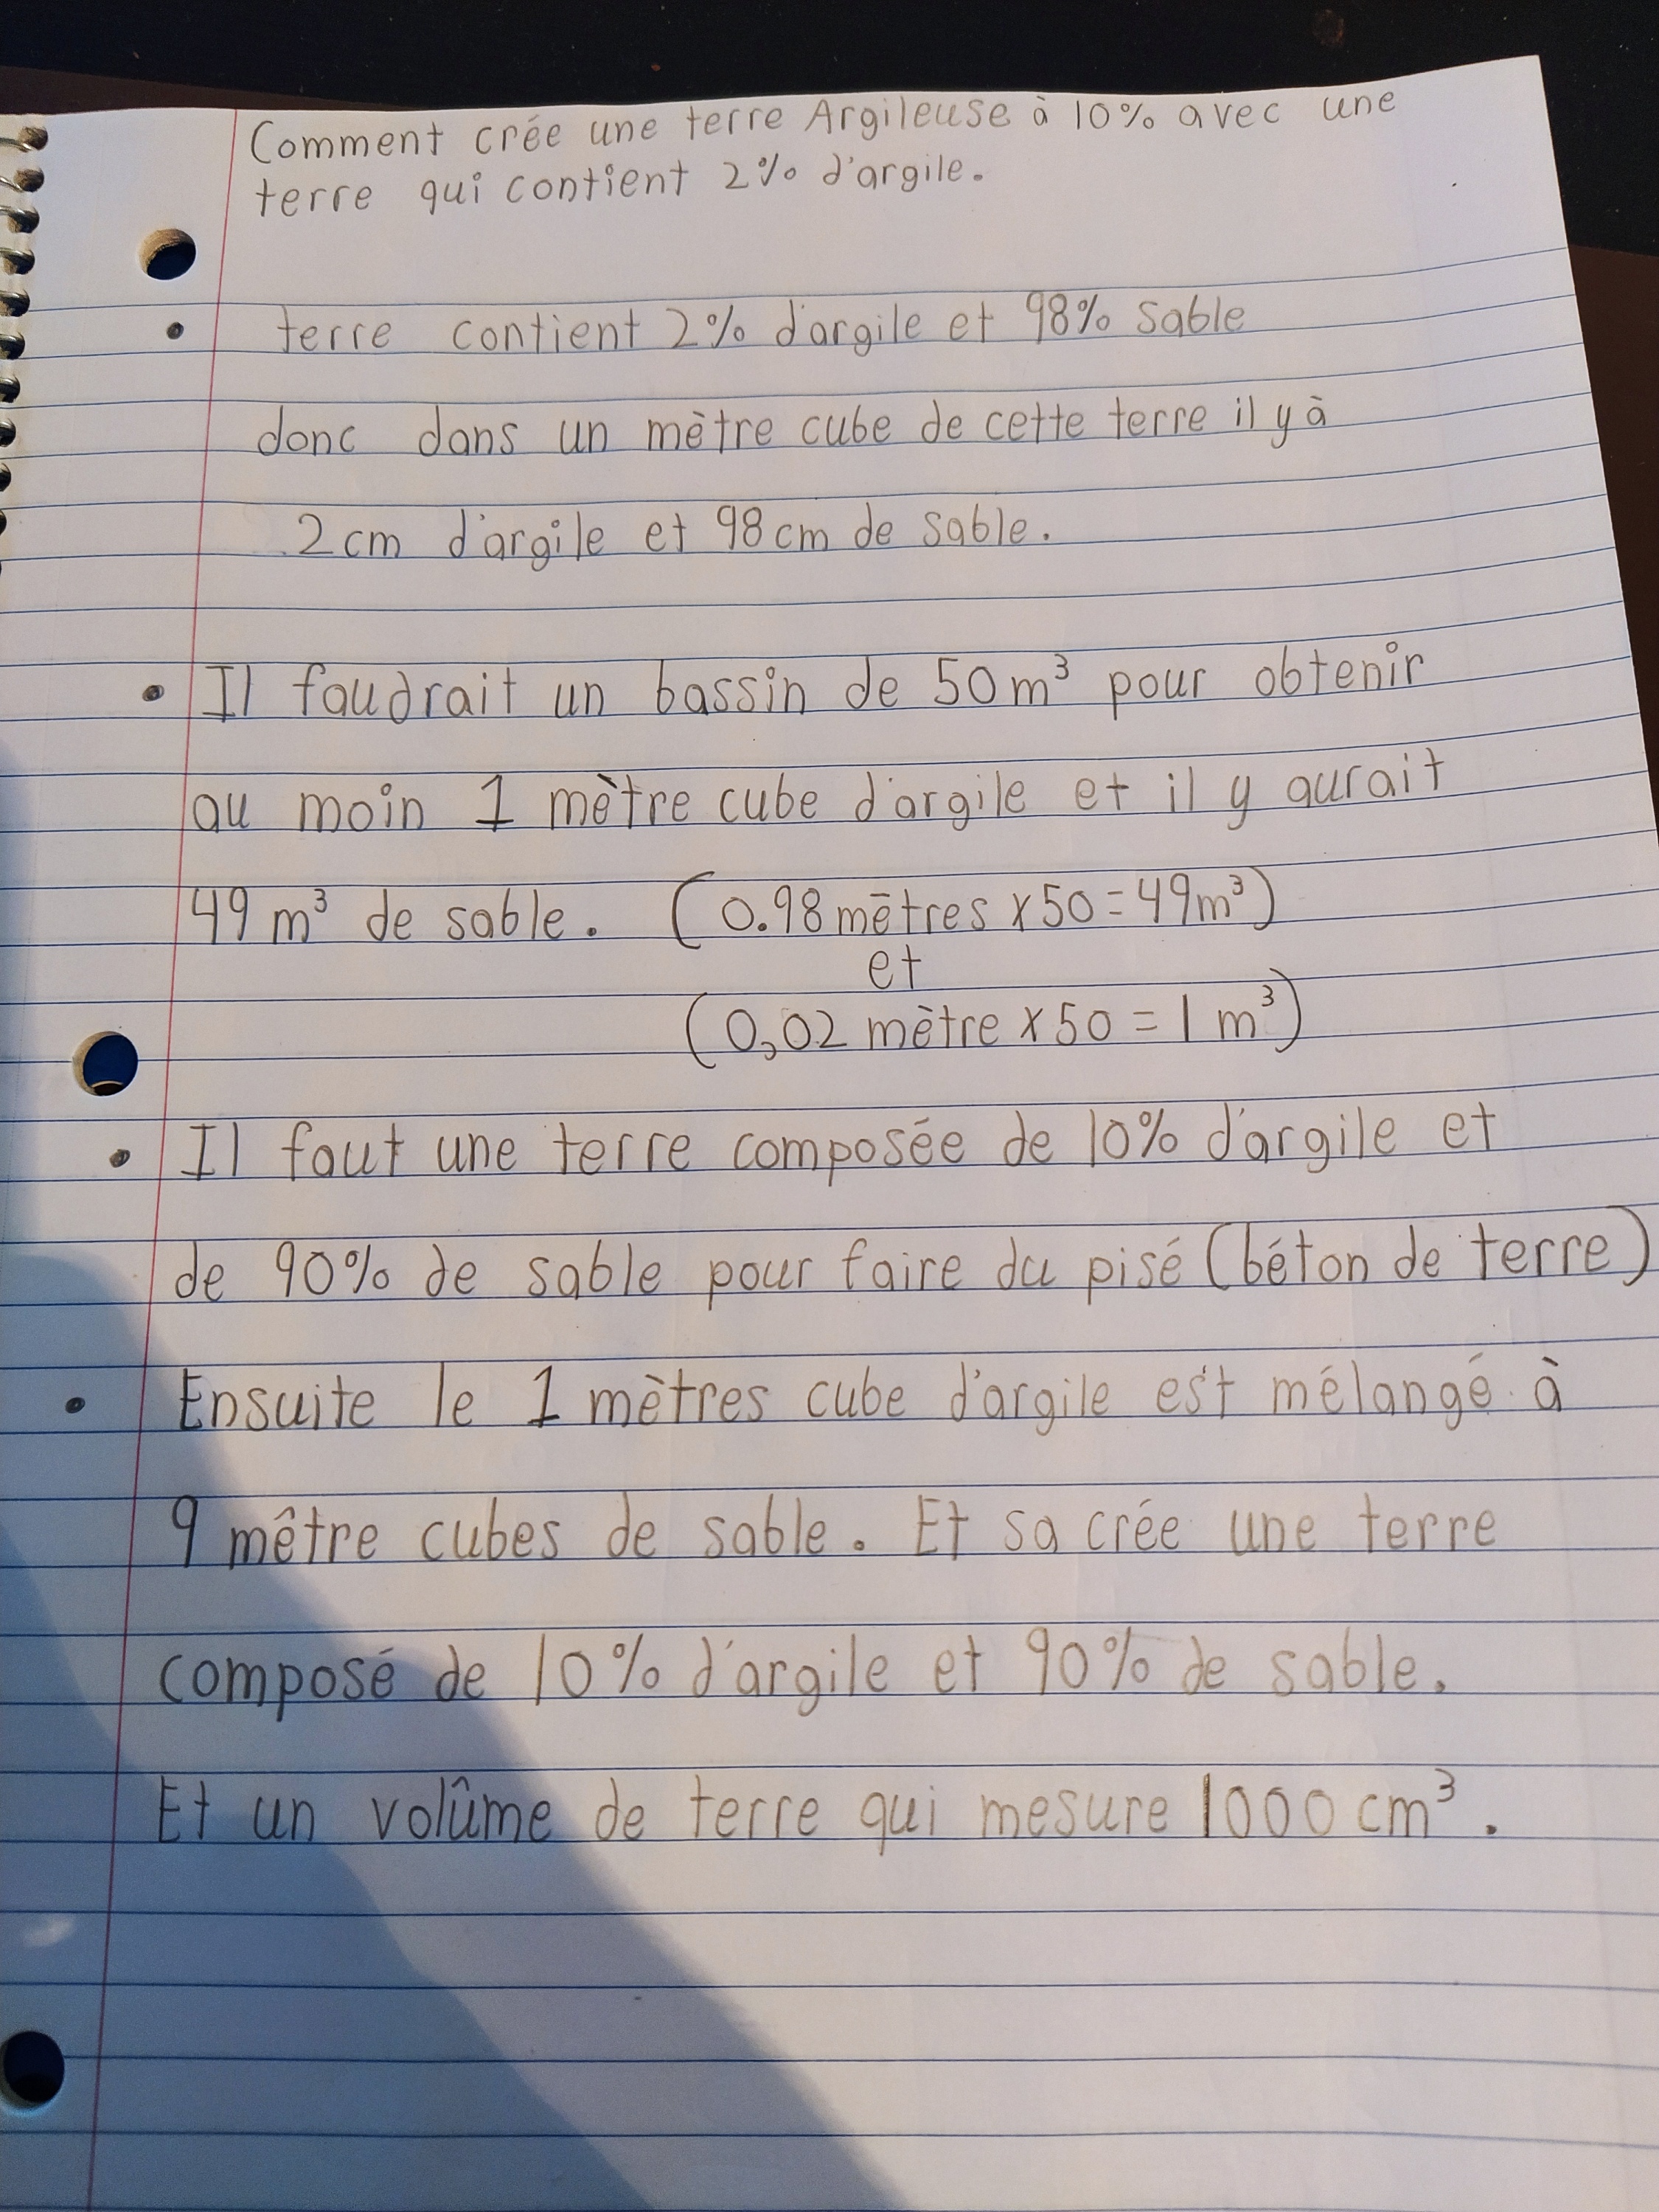 Comment crée une terre Argileuse à 10% avec une
terre qui contient 2% d'argile.
• terre contient 2% d'argile et 98% sable
donc dans un mètre cube de cette terre il y à
2cm d'argile et 98cm de sable.
• Il faudrait un bassin de 50m³ pour obtenir
au moin 1 mètre cube d'argile et il y aurait
49m³ de sable. (0.98 mètres x 50 = 49m³)
et
(0,02 mètre x 50 = 1 m³)
• Il faut une terre composée de 10% d'argile et
de 90% de sable pour faire du pisé (béton de terre)
• Ensuite le 1 mètres cube d'argile est mélangé à
9 mêtre cubes de sable. Et sa crée une terre
composé de 10% d'argile et 90% de sable.
Et un volûme de terre qui mesure 1000 cm³.